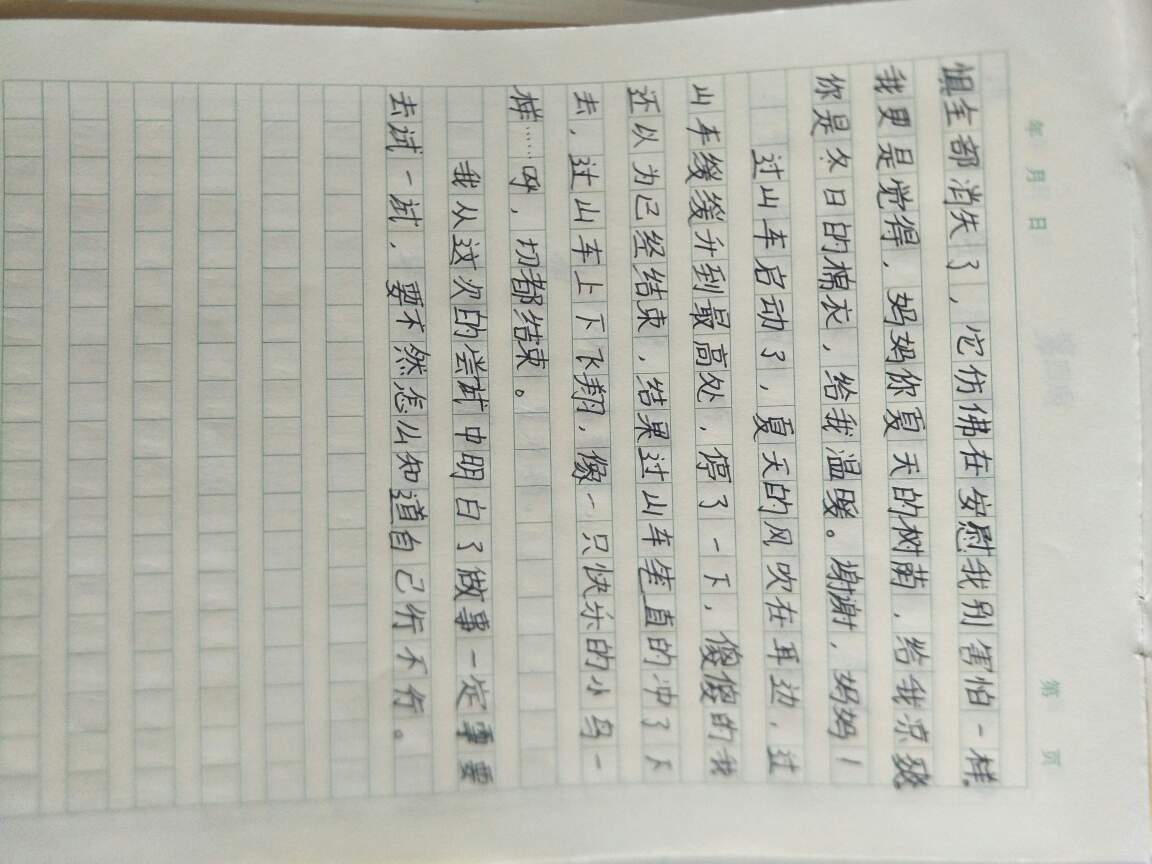 年 月 日 第 页
惧全部消失了，它仿佛在安慰我别害怕一样。
我更是觉得，妈妈你夏天的树荫，给我凉爽
你是冬日的棉衣，给我温暖。谢谢，妈妈！
过山车启动了，夏天的风吹在耳边，过
山车缓缓升到最高处，停了一下，傻傻的我
还以为已经结束，结果过山车笔直的冲了下
去，过山车上下飞翔，像一只快乐的小鸟一
样……呼，切都结束。
我从这次的尝试中明白了做事一定要
去试一试，要不然怎么知道自己行不行。